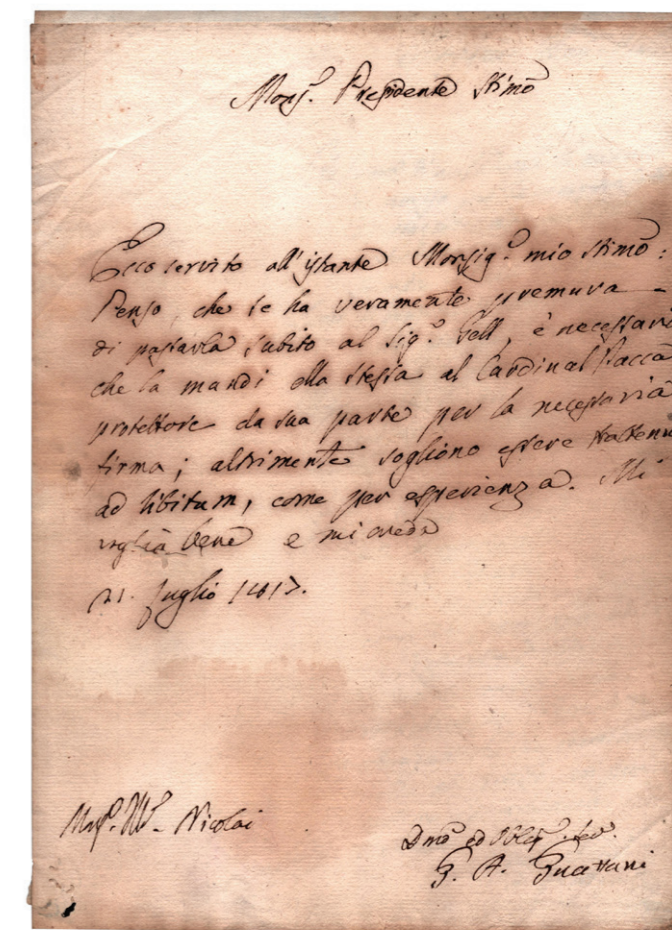 Monsʳ. Presidente Stimõ
Ecco servito all'istante Monsigʳ. mio stimõ:
Penso, che se ha veramente premura
di passarla subito al Sigʳ. Gell, è necessari
che la mandi ella stessa al Cardinal Pacca
protettore da sua parte per la necessaria
firma; altrimente sogliono essere trattenu
ad libitum, come per esperienza. Mi
voglia bene e mi creda
21. Luglio 1817.
Nicolai
G. A. Guattani